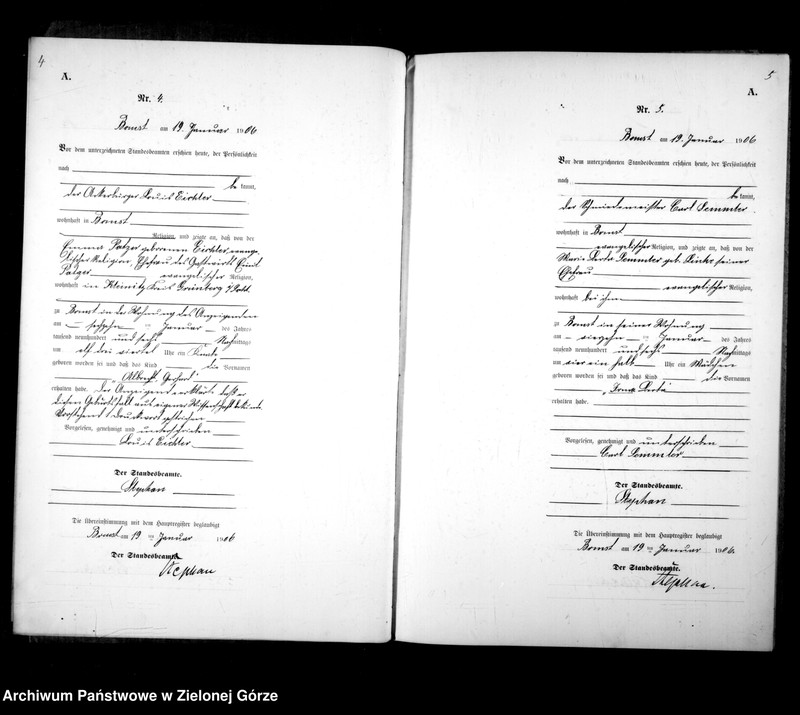 4
A.
Nr. 4.
Bomst am 19. Januar 1906
Vor dem unterzeichneten Standesbeamten erschien heute, der Persönlichkeit
nach
bekannt,
der Ackerbürger Louis Eichler
wohnhaft in Bomst
Religion, und zeigte an, daß von der
Emma Patzer geborenen Eichler, evange-
lischer Religion Ehefrau des Gastwirts Emil
Patzer evangelischer Religion,
wohnhaft in Kleinitz Kreis Grünberg
zu Bomst in der Wohnung des Anzeigenden
am sechzehn ten Januar des Jahres
tausend neunhundert und sechs Nachmittags
um elf drei viertel Uhr ein Knabe
geboren worden sei und daß das Kind die Vornamen
Albrecht Gerhard
erhalten habe. Der Anzeigende erklärte, daß er
diesen Geburtsfall aus eigener Wissenschaft bekunde
Vorstehend 1 Druckwort gestrichen
Vorgelesen, genehmigt und unterschrieben
Louis Eichler
Der Standesbeamte.
Stephan
Die Übereinstimmung mit dem Hauptregister beglaubigt
Bomst am 19 ten Januar 1906
Der Standesbeamte.
Stephan
5
A.
Nr. 5.
Bomst am 19. Januar 1906
Vor dem unterzeichneten Standesbeamten erschien heute, der Persönlichkeit
nach
bekannt,
der Schmiedemeister Carl Semmler
wohnhaft in Bomst
evangelischer Religion, und zeigte an, daß von der
Maria Berta Semmler geb. seiner
Ehefrau
evangelischer Religion,
wohnhaft bei ihm
zu Bomst in seiner Wohnung
am vierzehn ten Januar des Jahres
tausend neunhundert und sechs Nachmittags
um vier ein halb Uhr ein Mädchen
geboren worden sei und daß das Kind die Vornamen
Berta
erhalten habe.
Vorgelesen, genehmigt und unterschrieben
Carl Semmler
Der Standesbeamte.
Stephan
Die Übereinstimmung mit dem Hauptregister beglaubigt
Bomst am 19 ten Januar 1906.
Der Standesbeamte.
Stephan.
Archiwum Państwowe w Zielonej Górze